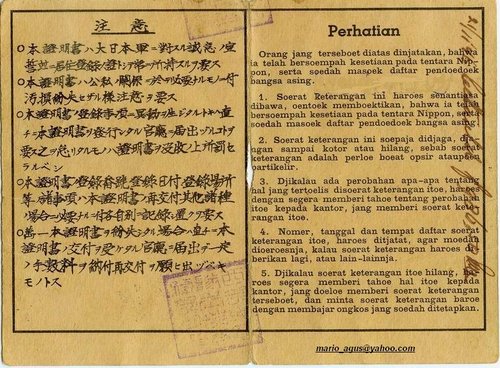 注意
○本證明書ハ大日本軍ニ對スル誠忠ノ宣
誓並ニ居住登録ノ證トシテ常ニ所持スルヲ要ス
○本證明書ハ公私ノ關係ニ於テ必要トルモノニ付
汚損紛失セザル様注意ヲ要ス
○本證明書ノ登録事項ニ異動ヲ生ジタルトキハ直
チニ本證明書ヲ發行シタル官廳ニ届出ヅルコトヲ
要ス之ヲ怠リタルモノハ證明書ヲ沒收ノ上所罰セ
ラルベシ
○本證明書ノ登録番號登録日付登録場所
等ノ諸事項ハ本證明書ノ再交付其ノ他諸種
場合ニ必要ナルニ付各自別ニ記録シ置クヲ要ス
○萬一本證明書ヲ紛失シタル場合ハ直チニ本
證明書ノ交付ヲ受ケタル官廳ニ届出デ一定
ノ手數料ヲ納付再交付ヲ願ヒ出ヅベキ
モノトス
Perhatian
Orang jang terseboet diatas dinjatakan, bahwa
ia telah bersoempah kesetiaan pada tentara Nip-
pon, serta soedah masoek daftar pendoedoek
bangsa asing.
1. Soerat Keterangan ini haroes senantiasa
dibawa, oentoek memboektikan, bahwa ia telah
bersoempah kesetiaan pada tentara Nippon, serta
soedah masoek daftar pendoedoek bangsa asing.
2. Soerat keterangan ini soepaja didjaga, dja-
ngan sampai kotor atau hilang, sebab soerat
keterangan adalah perloe boeat opsir ataupoen
partikelir.
3. Djikalau ada perobahan apa-apa tentang
hal jang tertoelis disoerat keterangan itoe, haroes
dengan segera memberi tahoe tentang perobahan
itoe kepada kantor, jang memberi soerat kete-
rangan itoe.
4. Nomer, tanggal dan tempat daftar soerat
keterangan itoe, haroes ditjatat, agar moedah
dioeroesnja, kalau soerat keterangan haroes di-
berikan lagi, atau lain-lainnja.
5. Djikalau soerat keterangan itoe hilang, ha-
roes segera memberi tahoe hal itoe kepada
kantor, jang doeloe memberi soerat keterangan
terseboet, dan minta soerat keterangan baroe
dengan membajar ongkos jang soedah ditetapkan.
mario_agus@yahoo.com